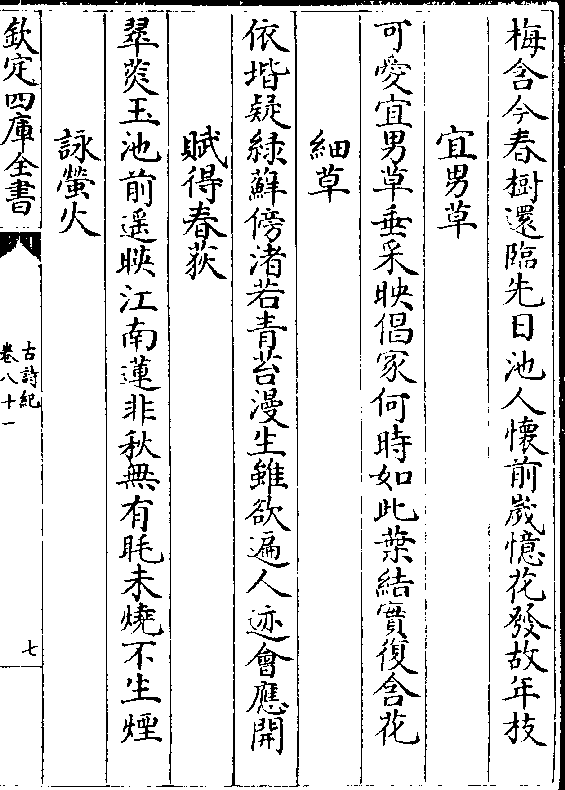 梅含今春樹還臨先日池人懷前歲憶花發故年枝
宜男草
可愛宜男草垂采映倡家何時如此葉結實復含花
細草
依堦疑綠蘚傍渚若青苔漫生雖欲遍人迹會應開
賦得春荻
翠荻玉池前遥映江南蓮非秋無有毦未燒不生煙
詠螢火
欽定四庫全書
古詩紀
卷八十一
七